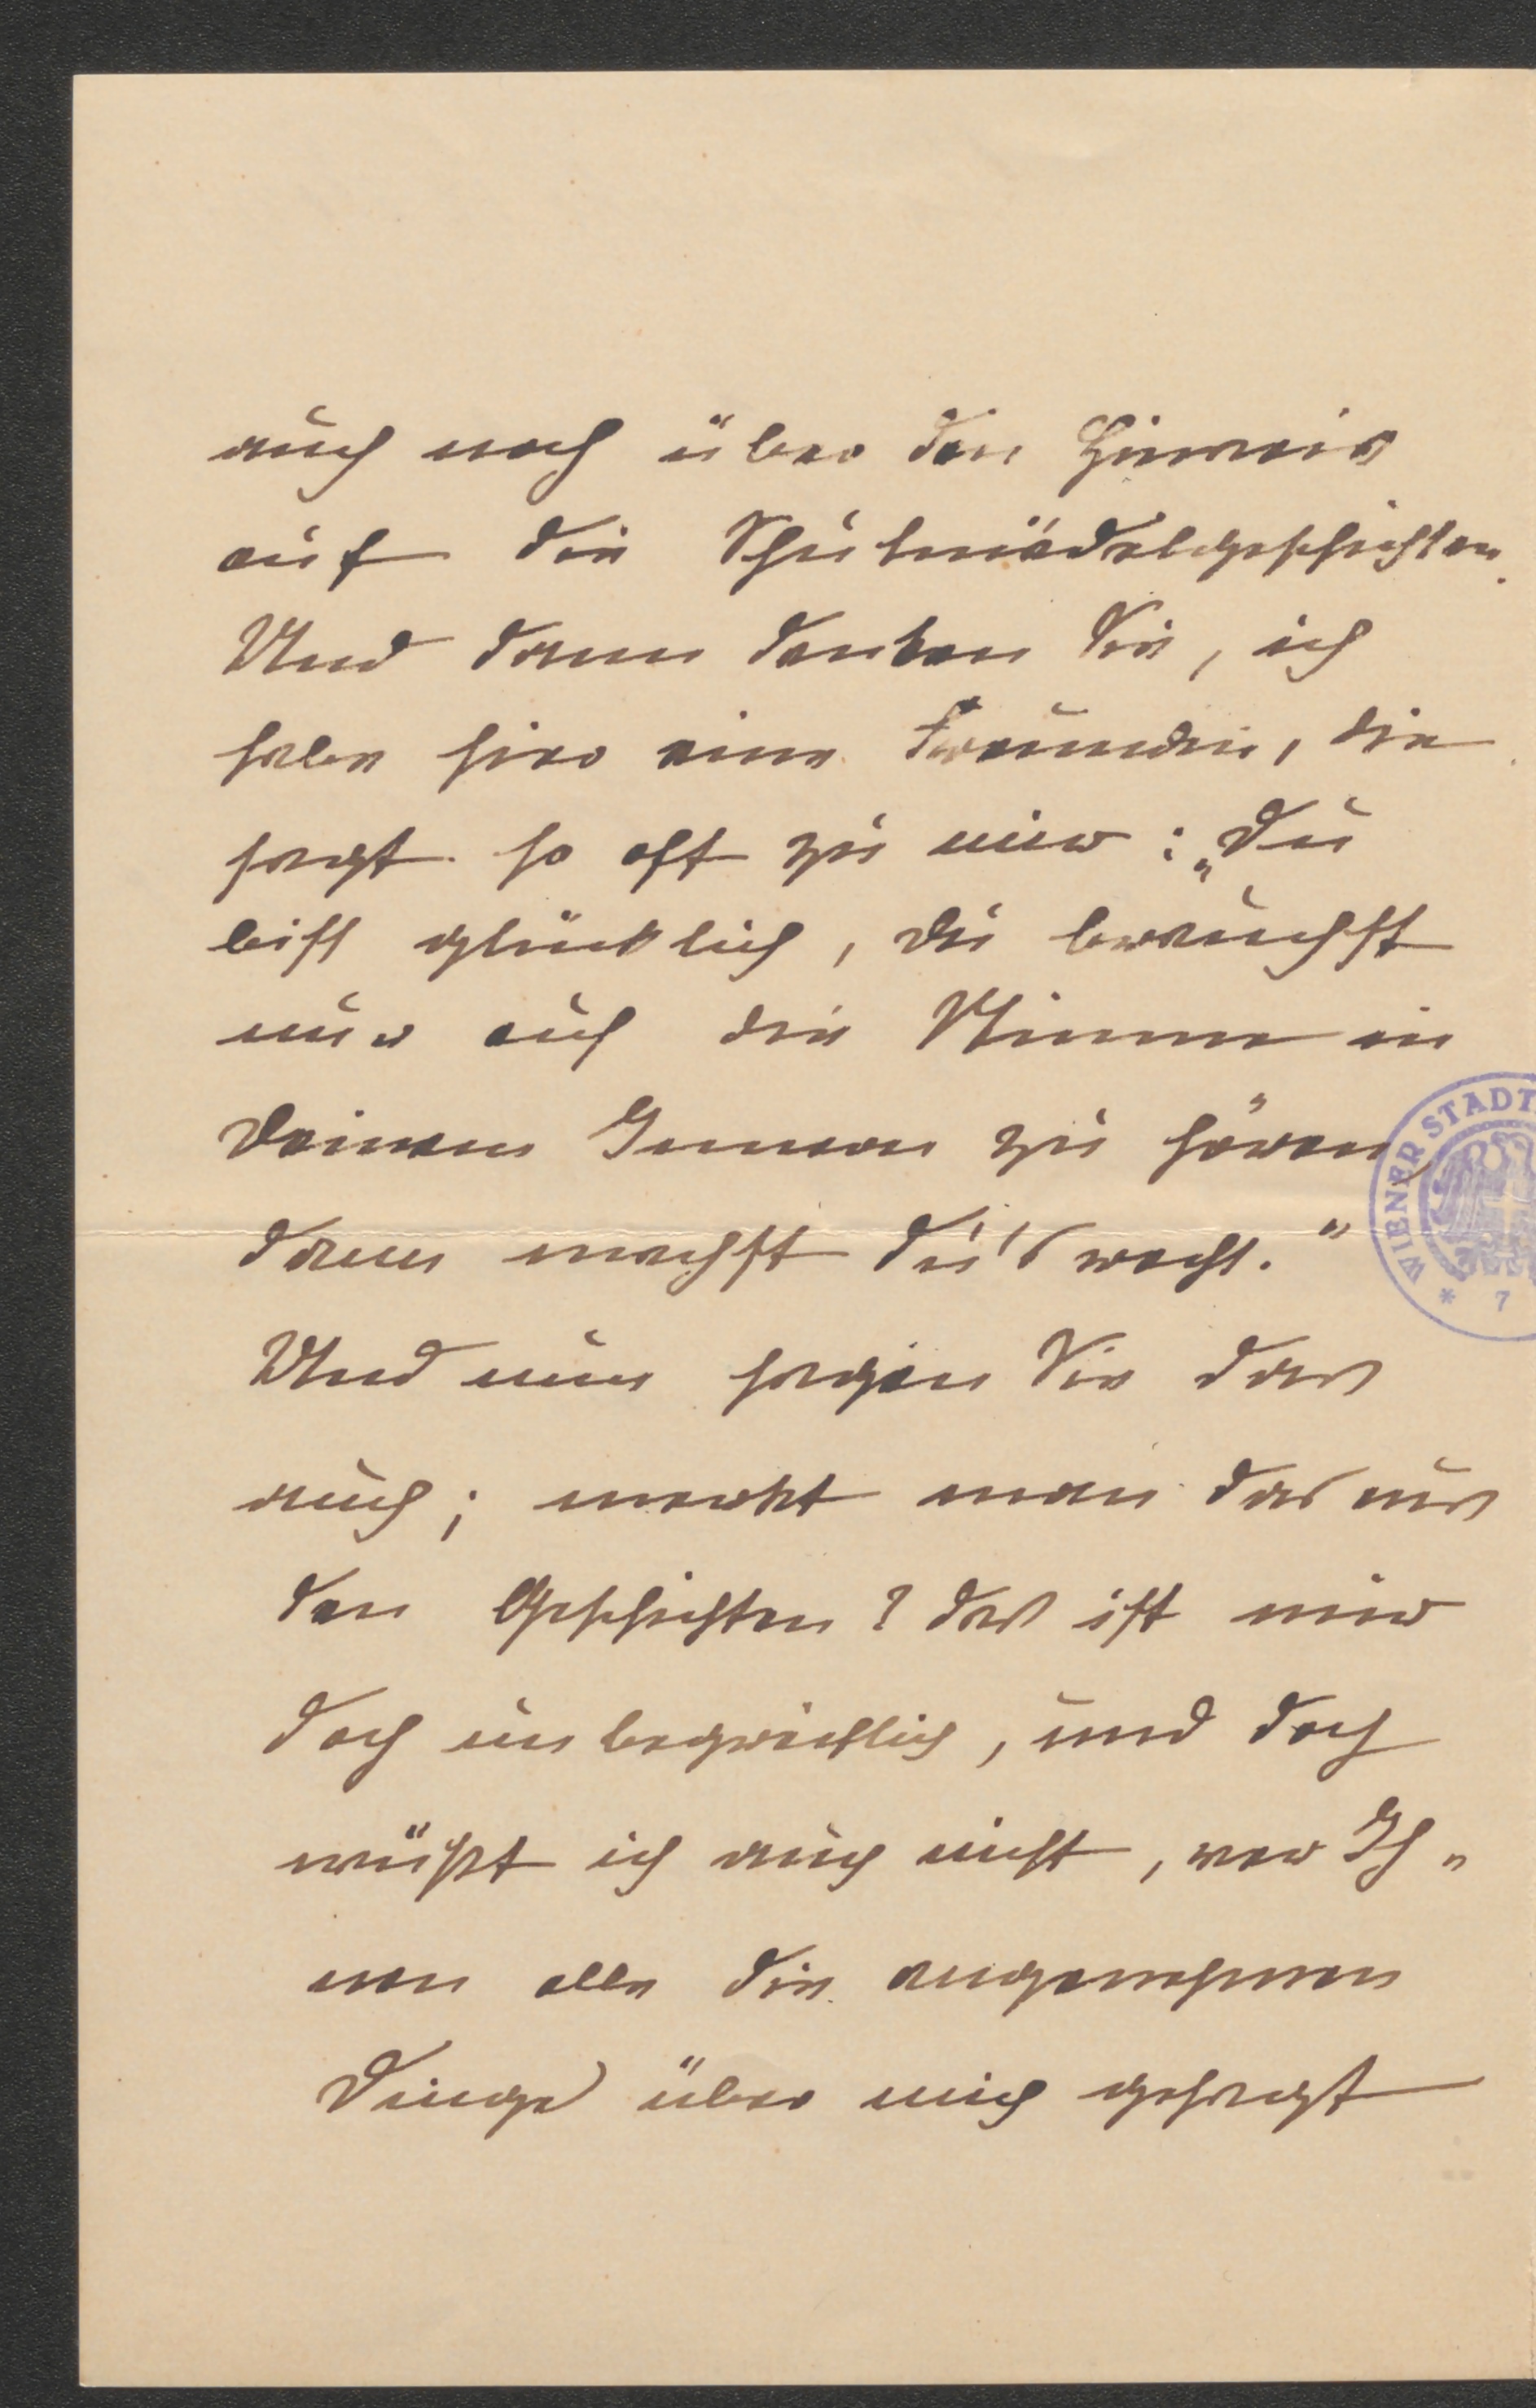 auch noch über den Hinweis
auf die Schulmädelgeschichten.
Und dann denken Sie, ich
habe hier eine Freundin, die
sagt so oft zu mir: „Du
bist glücklich, du brauchst
nur auf die Stimme in
Deinem Innern zu hören,
dann machst du's recht.“
Und nun sagen Sie das
auch; merkt man das aus
den Geschichten? das ist mir
doch unbegreiflich, und doch
wüßt ich auch nicht, wer Ih„
nen alle die angenehmen
Dinge über mich gesagt
WIENER STADT
* 7